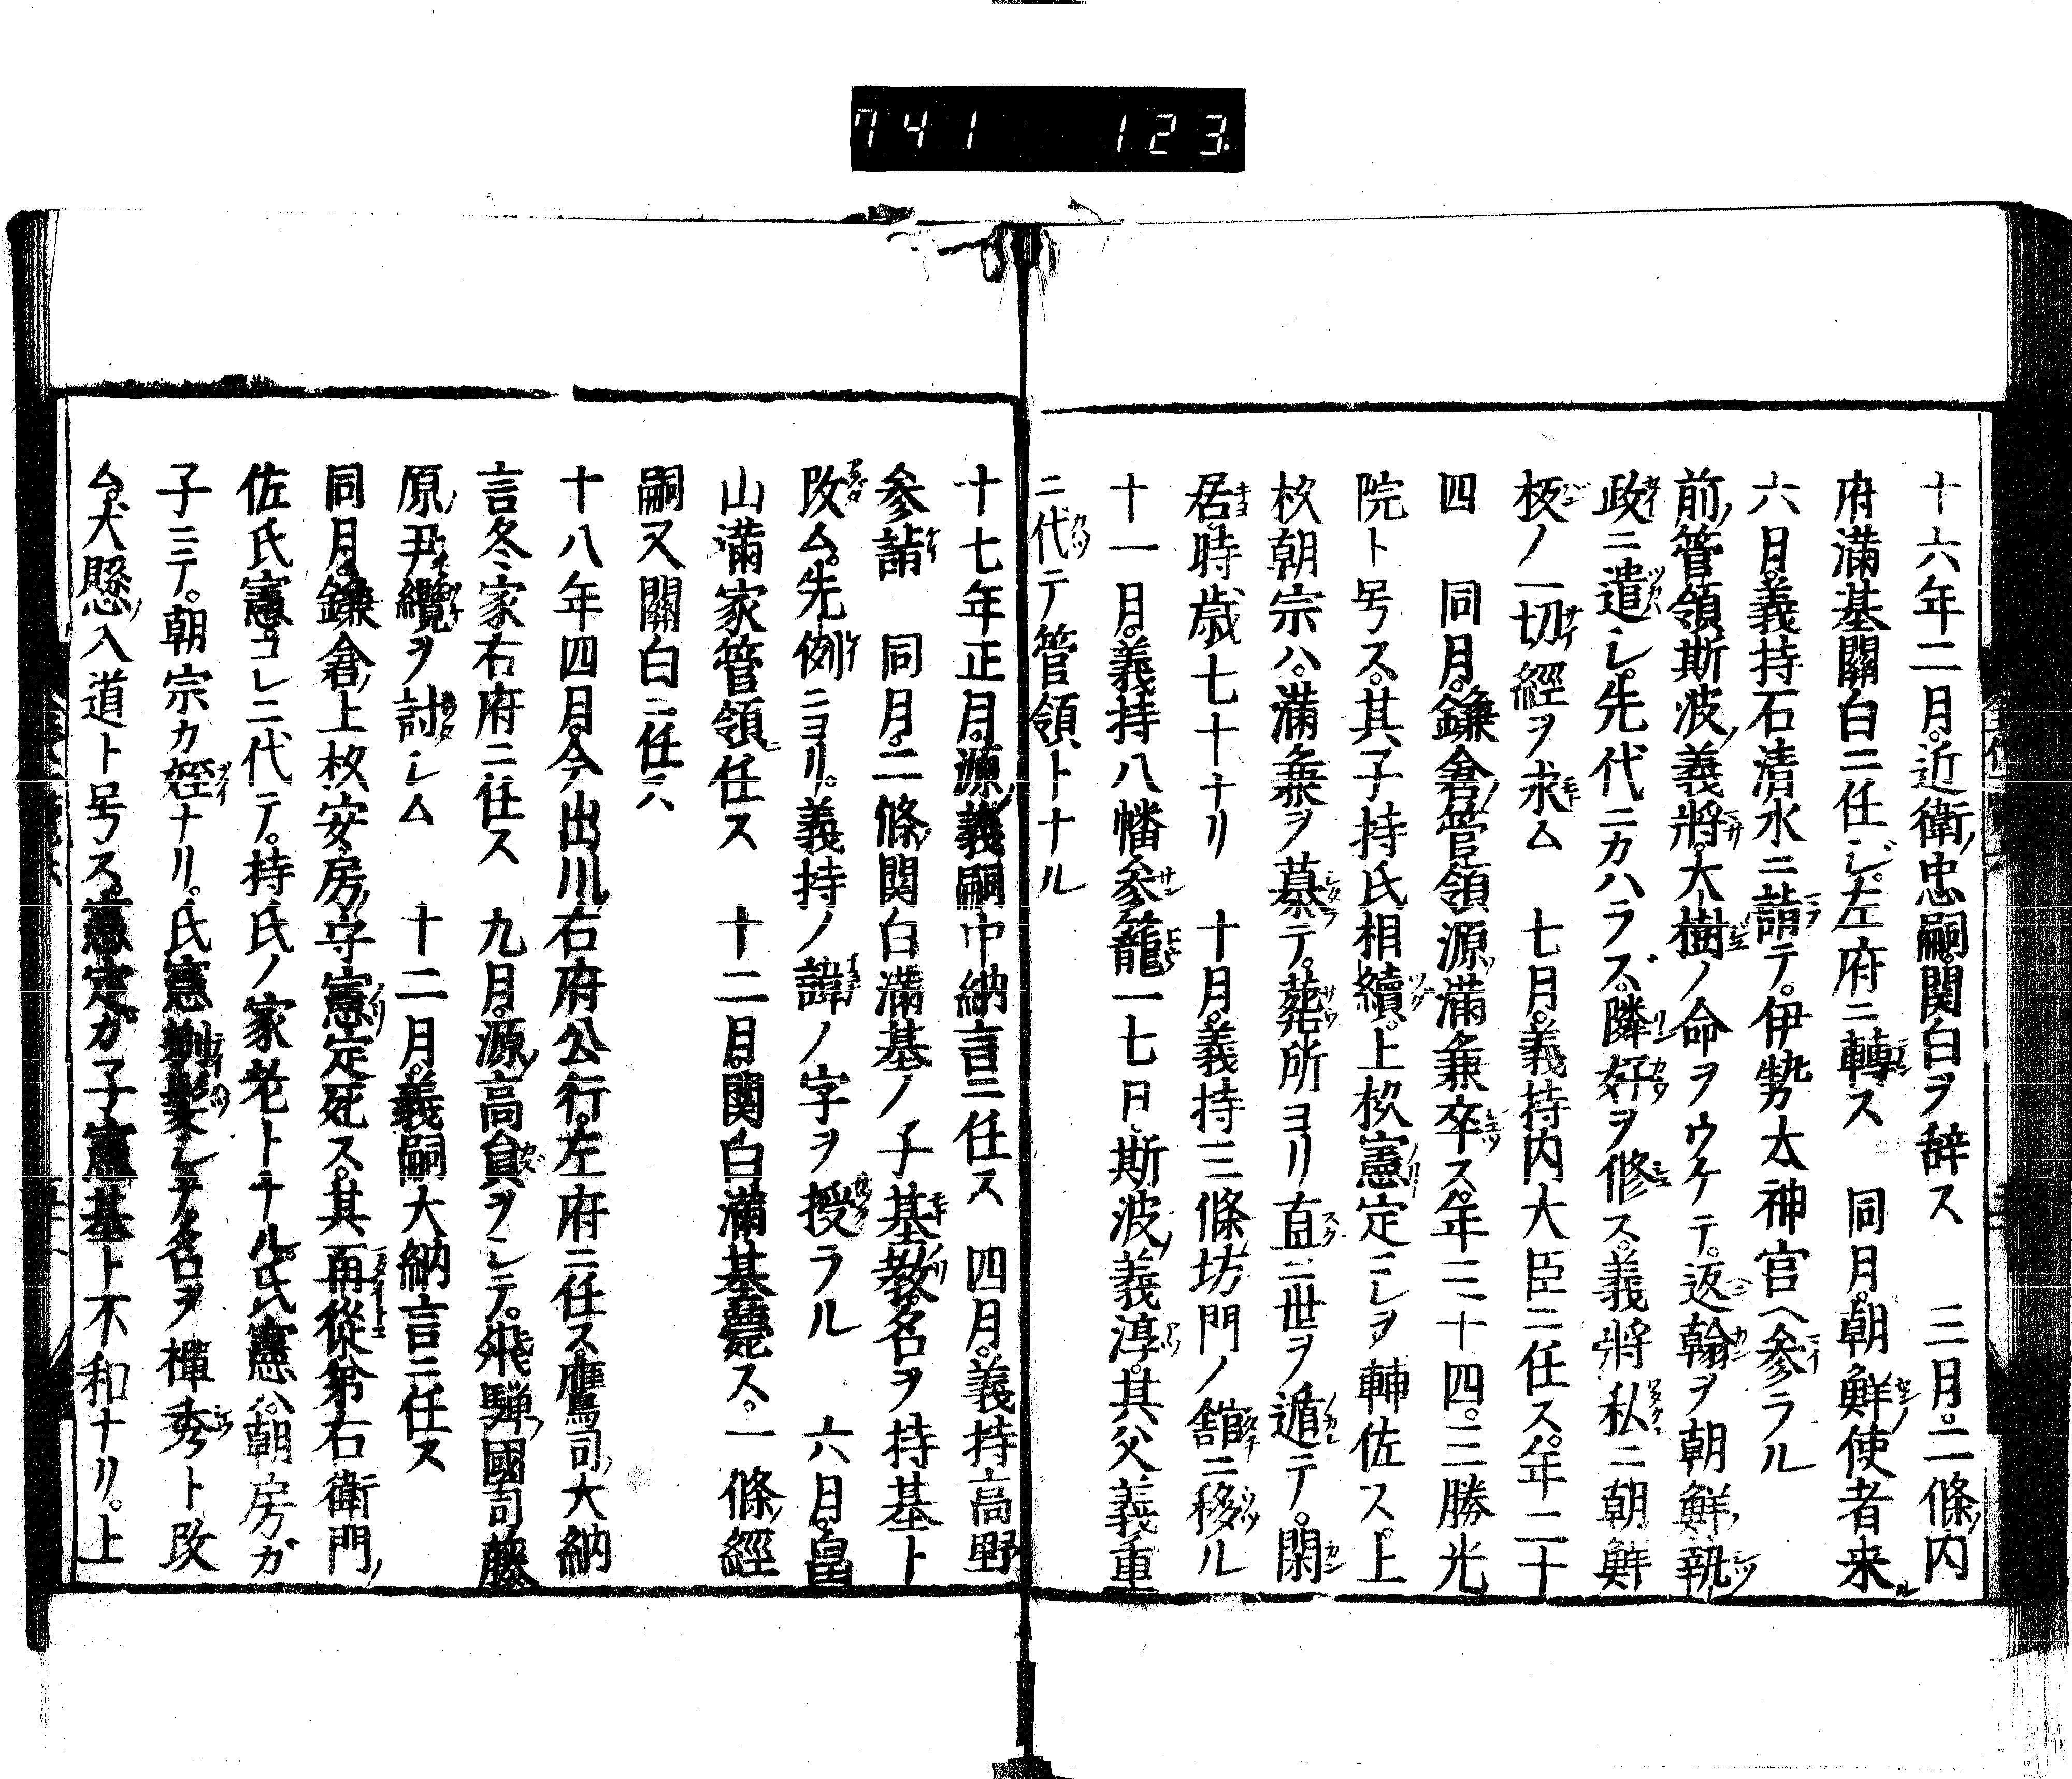 741 123
十六年二月。近衛ノ忠嗣。関白ヲ辞ス　三月。二條ノ内
府滿基關白ニ任ジ。左府ニ轉ス　同月。朝鮮ノ使者来ル
六月。義持石清水ニ詣テ。伊勢太神宮ヘ参ラル
前ノ管領斯波ノ義將。大樹ノ命ヲウケテ。返翰ヲ朝鮮ノ執
政ニ遣シ。先代ニカハラズ。隣好ヲ修ス。義將私ニ朝鮮
板ノ一切經ヲ求ム　七月。義持内大臣ニ任ス。年二十
四　同月。鎌倉ノ管領源ノ滿兼卒ス。年三十四。三勝光
院ト号ス。其子持氏相續。上杦憲定コレヲ輔佐ス。上
杦朝宗ハ。滿兼ヲ慕テ。葬所ヨリ直ニ世ヲ遁テ。閑
居。時歳七十ナリ　十月。義持三條坊門ノ舘ニ移ル
十一月。義持八幡参籠一七日。斯波ノ義淳。其父義重
ニ代テ管領トナル
十七年正月。源ノ義嗣中納言ニ任ス　四月。義持高野
参詣　同月。二條ノ関白滿基ノ子基教。名ヲ持基ト
改ム。先例ニヨリ。義持ノ諱ノ字ヲ授ラル　六月。畠
山滿家管領ニ任ス　十二月。関白滿基薨ス。一條ノ經
嗣又關白ニ任ス
十八年四月。今出川ノ右府公行。左府ニ任ス。鷹司ノ大納
言冬家右府ニ任ス　九月。源ノ高員ヲシテ。飛騨ノ國司藤
原ノ尹纜ヲ討シム　十二月。義嗣大納言ニ任ス
同月。鎌倉ノ上杦安房ノ守憲定死ス。其再從弟右衛門ノ
佐氏憲コレニ代テ。持氏ノ家老トナル。氏憲ハ。朝房ガ
子ニテ。朝宗カ姪ナリ。氏憲剃髪シテ。名ヲ禪秀ト改
ム。犬懸ノ入道ト号ス。憲定ガ子憲基ト不和ナリ。上